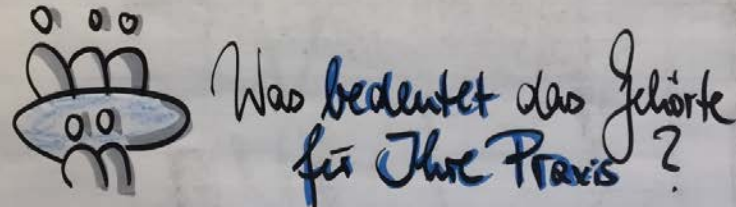 Was bedeutet das Gehörte
für Ihre Praxis?